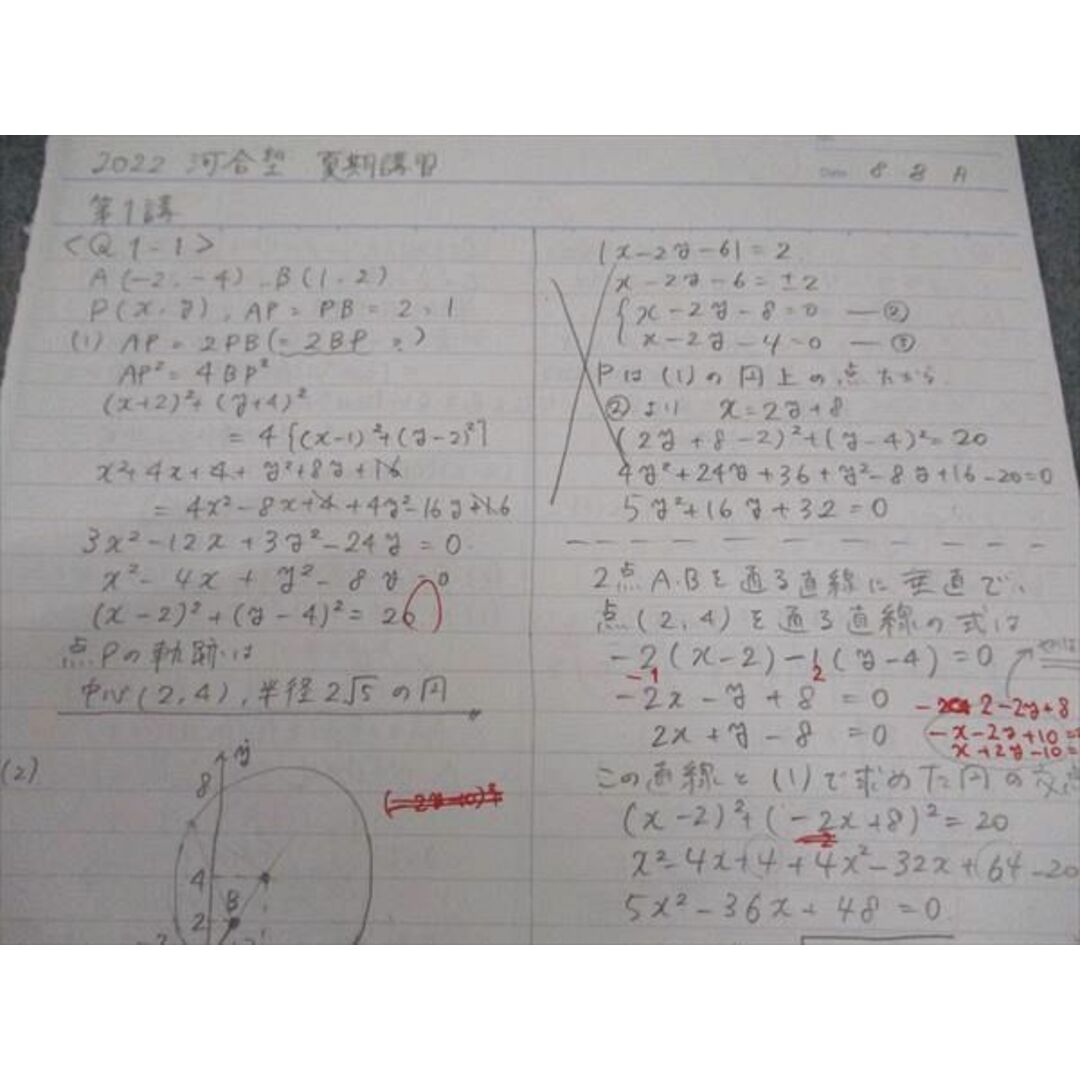 2022 河合塾 夏期講習
Date 8 8 A
第1講
<Q1-1>
A(-2,-4), B(1,2)
P(x,y), AP = PB = 2:1
(1) AP = 2PB (= 2BP ?)
AP² = 4BP²
(x+2)²+(y+4)²
= 4{(x-1)²+(y-2)²}
x²+4x+4+y²+8y+16
= 4x²-8x+4+4y²-16y+16
3x²-12x+3y²-24y=0
x²-4x+y²-8y=0
(x-2)²+(y-4)²=20
点Pの軌跡は
中心(2,4),半径2√5の円
(2)
y
8
4
B
2
-2
(-2y+10)²+
|x-2y-6|=2
x-2y-6=±2
x-2y-8=0 —②
x-2y-4=0 —③
Pは(1)の円上の点だから
②より x=2y+8
(2y+8-2)²+(y-4)²=20
4y²+24y+36+y²-8y+16-20=0
5y²+16y+32=0
2点A.Bを通る直線に垂直で、
点(2,4)を通る直線の式は
-2(x-2)-1(y-4)=0
-1 2
-2x-y+8=0
2-2y+8
2x+y-8=0
-x-2y+10=
x+2y-10=
この直線と(1)で求めた円の交点
(x-2)²+(-2x+8)²=20
-2
x²-4x+4+4x²-32x+64-20
5x²-36x+48=0